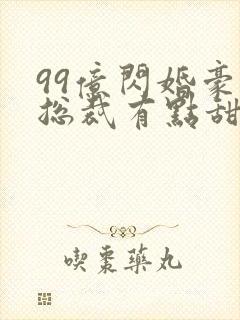 99億閃婚豪
總裁有點甜
喫棗藥丸